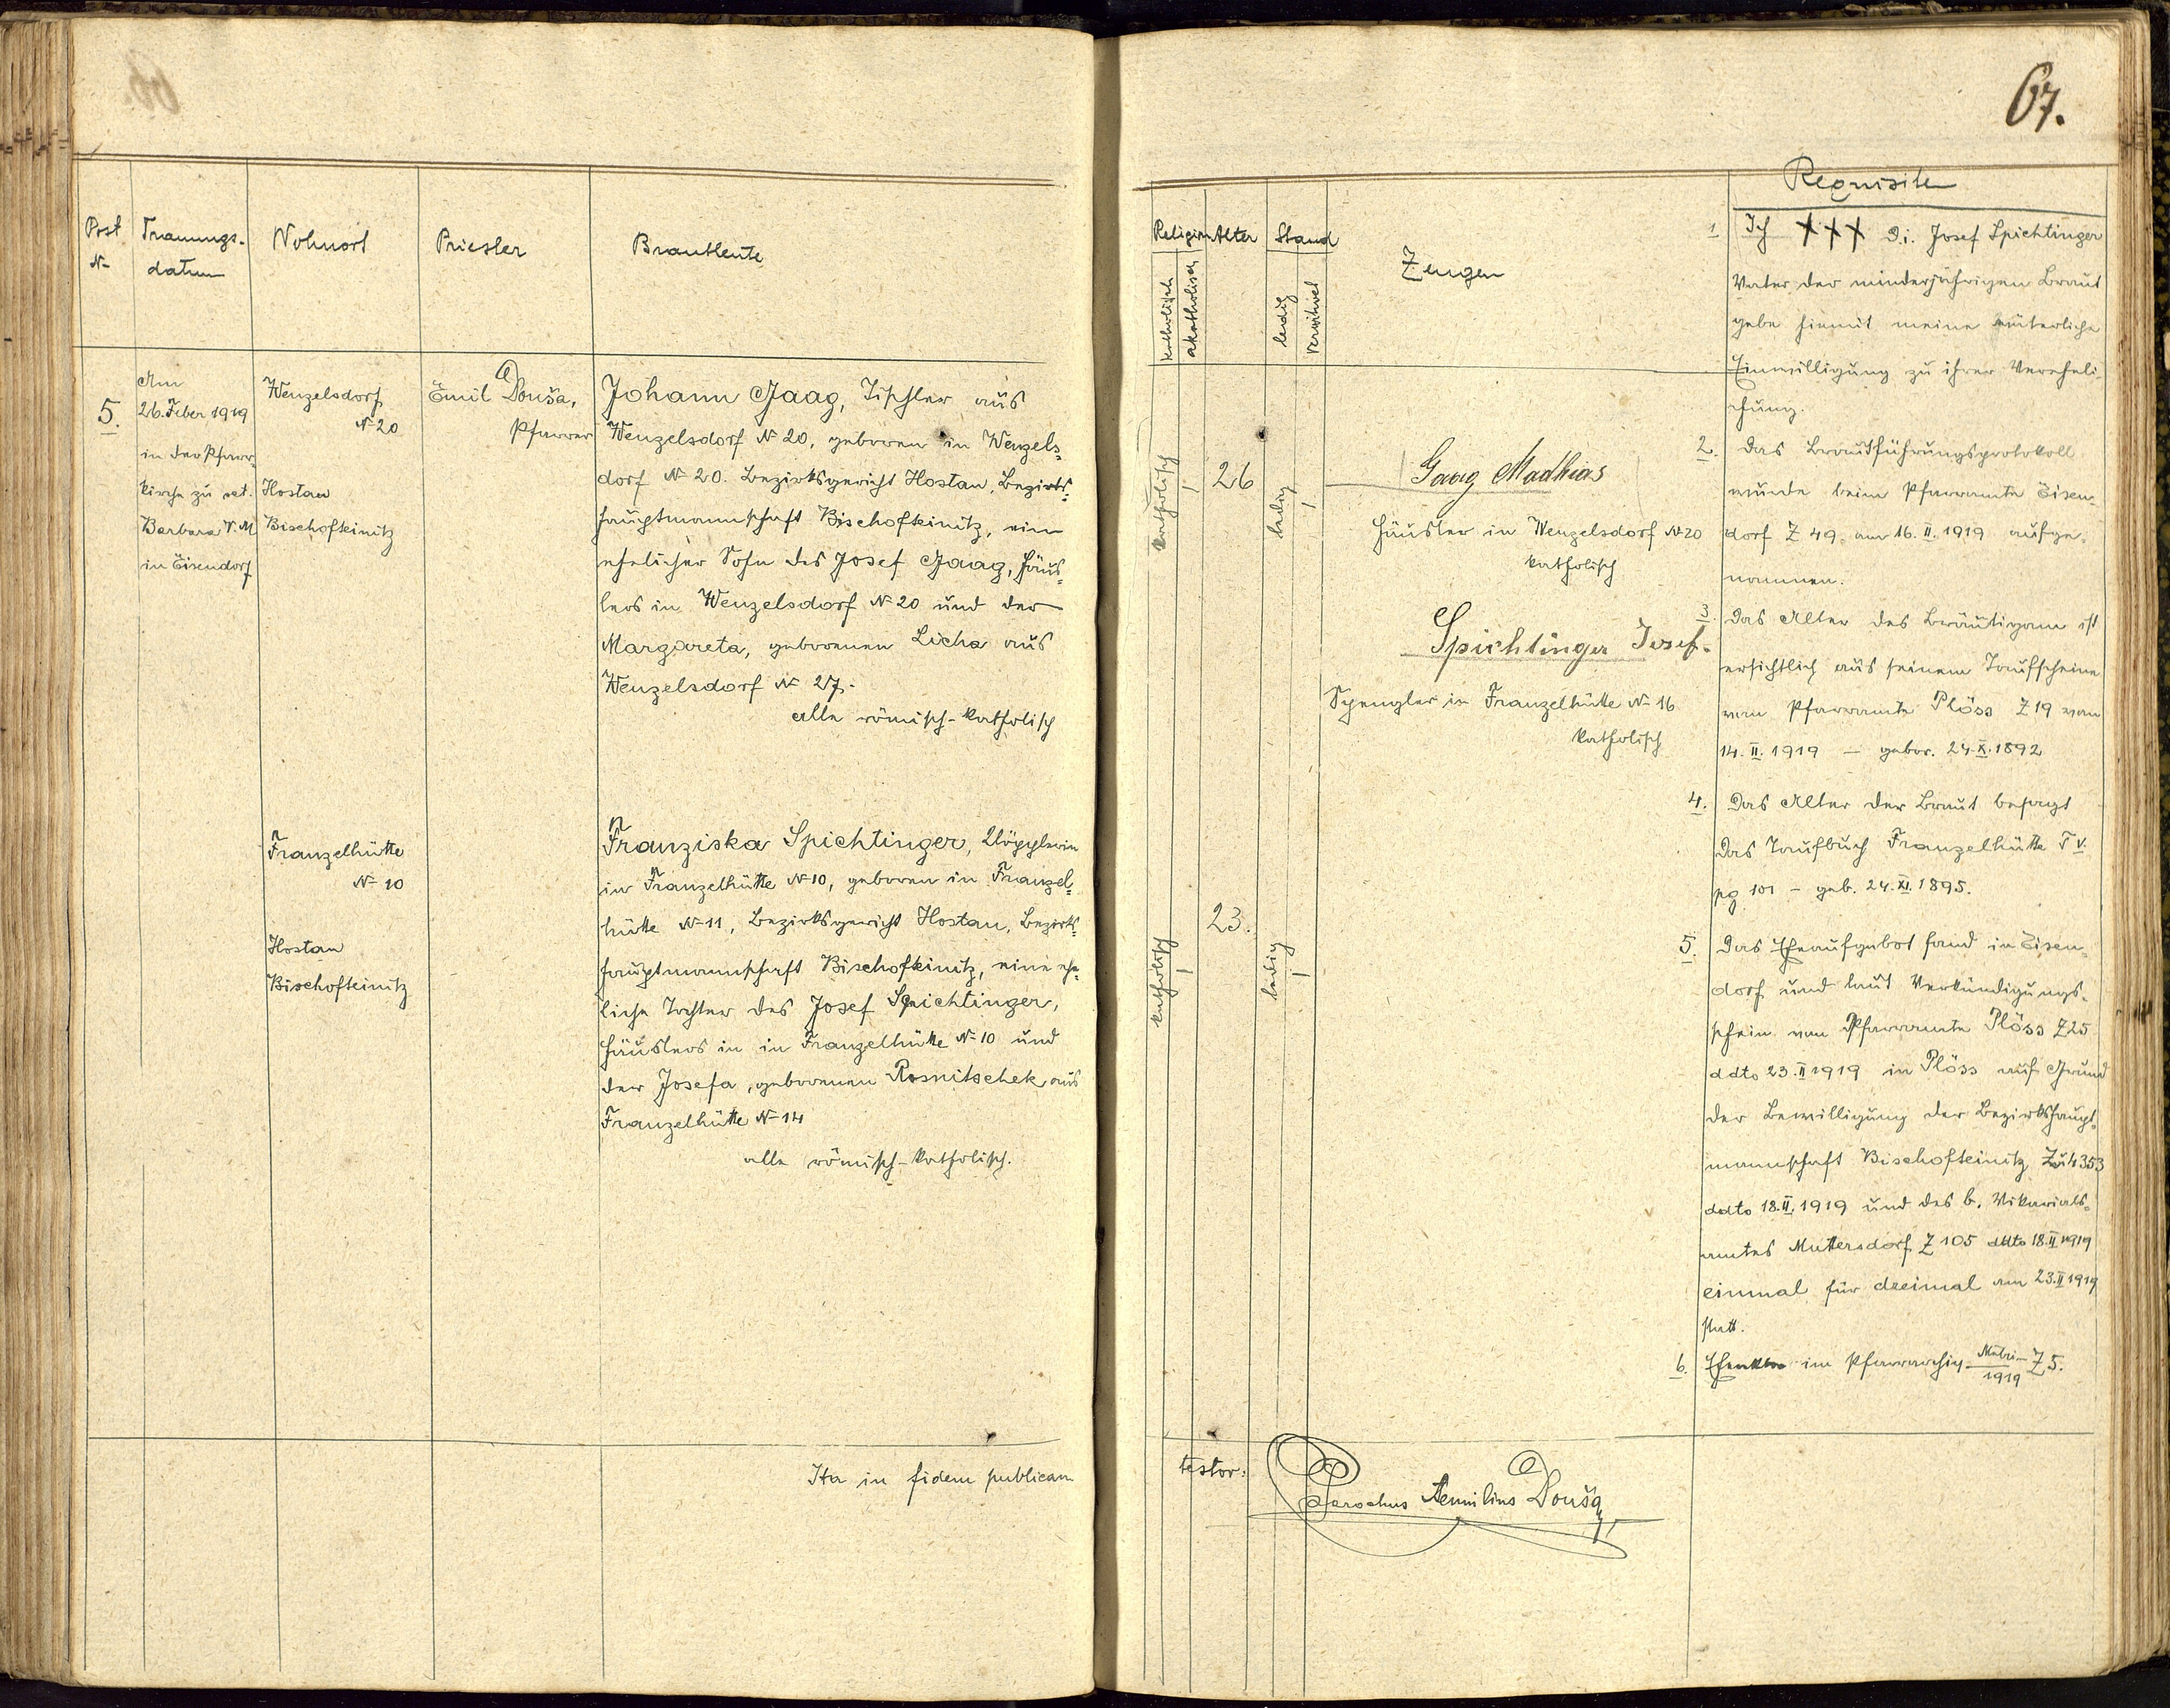 67.
Post
N-
Trauungs-
datum
Wohnort
Priester
Brautleute
5.
Am
26. Feber 1919
in der Pfarr-
kirche zu set.
Barbara V. M
in Eisendorf
Wenzelsdorf
N- 20
Hostau
Bischofteinitz
Emil Douša,
Pfarrer
Johann Gaag, Tischler aus
Wenzelsdorf N- 20, geboren in Wenzels-
dorf N- 20. Bezirksgericht Hostau, Bezirks-
hauptmannschaft Bischofteinitz, ein
ehelicher Sohn des Josef Gaag, Häus-
lers in Wenzelsdorf N- 20 und der
Margareta, geborenen Licha aus
Wenzelsdorf N- 27.
alle römisch-katholisch
Franzelhütte
N- 10
Hostau
Bischofteinitz
Franziska Spichtinger, Klöpplerin
in Franzelhütte N- 10, geboren in Franzel-
hütte N- 11, Bezirksgericht Hostau, Bezirks-
hauptmannschaft Bischofteinitz, eine ehe-
liche Tochter des Josef Spichtinger,
Häuslers in in Franzelhütte N- 10 und
der Josefa, geborenen Rosnitschek aus
Franzelhütte N- 14
alle römisch-katholisch.
Ita in fidem publicam
Religion
katholisch
akatholisch
Alter
Stand
ledig
verwitwet
Zeugen
Requisiten
katholisch
26
ledig
Gaag Madhias
Häusler in Wenzelsdorf N- 20
katholisch
Spichtinger Josef.
Spengler in Franzelhütte N- 16
katholisch
katholisch
23.
ledig
1. Ich +++ d.i. Josef Spichtinger
Vater der minderjährigen Braut
gebe hiemit meine väterliche
Einwilligung zu ihrer Vereheli-
chung.
2. Das Brautführungsprotokoll
wurde beim Pfarramte Eisen-
dorf Z 49. am 16. II. 1919 aufge-
nommen.
3. Das Alter des Bräutigam ist
ersichtlich aus seinem Taufscheine
vom Pfarramte Plöss Z 19 vom
14. II. 1919 – gebor. 24. X. 1892
4. Das Alter der Braut besagt
das Taufbuch Franzelhütte T V.
pg 101 – geb. 24. XI. 1895.
5. Das Eheaufgebot fand in Eisen-
dorf und laut Verkündigungs-
schein vom Pfarramte Plöss Z 25
ddto 23. II 1919 in Plöss auf Grund
der Bewilligung der Bezirkshaupt-
mannschaft Bischofteinitz 4353
ddto 18. II. 1919 und des b. Vikariats-
amtes Muttersdorf Z 105 ddto 18. II 1919
einmal für dreimal am 23. II 1919
statt.
6. Eheakten im Pfarrarchiv Matri-/1919 Z 5.
testor:
Parochus Aemilius Douša